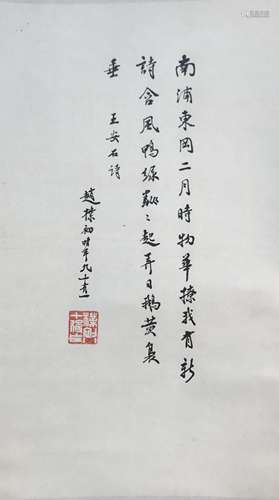 南浦東岡二月時物華撩我有新
詩含風鴨綠粼〻起弄日鵝黄裊〻
垂
王安石詩
趙樸初時年九十有一